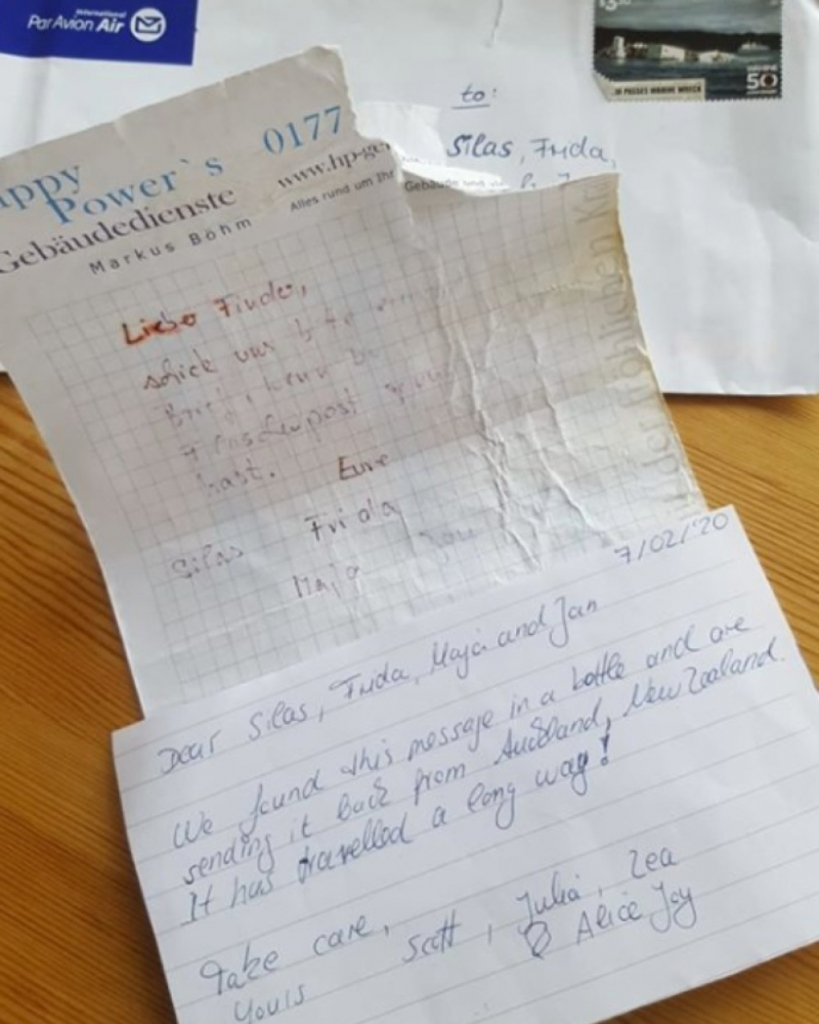 International
ParAvion Air
50
to:
Silas, Frida,
Power`s 0177
Gebäudedienste
Markus Böhm
Alles rund um Ihr Gebäude und
Liebe Finder,
schick uns
hast. Eure
Silas Frida
Maja Jan
7/02/'20
Dear Silas, Frida, Maja and Jan
We found this message in a bottle and are
sending it back from Auckland, New Zealand.
It has travelled a long way!
Take care,
Yours Scott, Julia, Zea
& Alice Joy